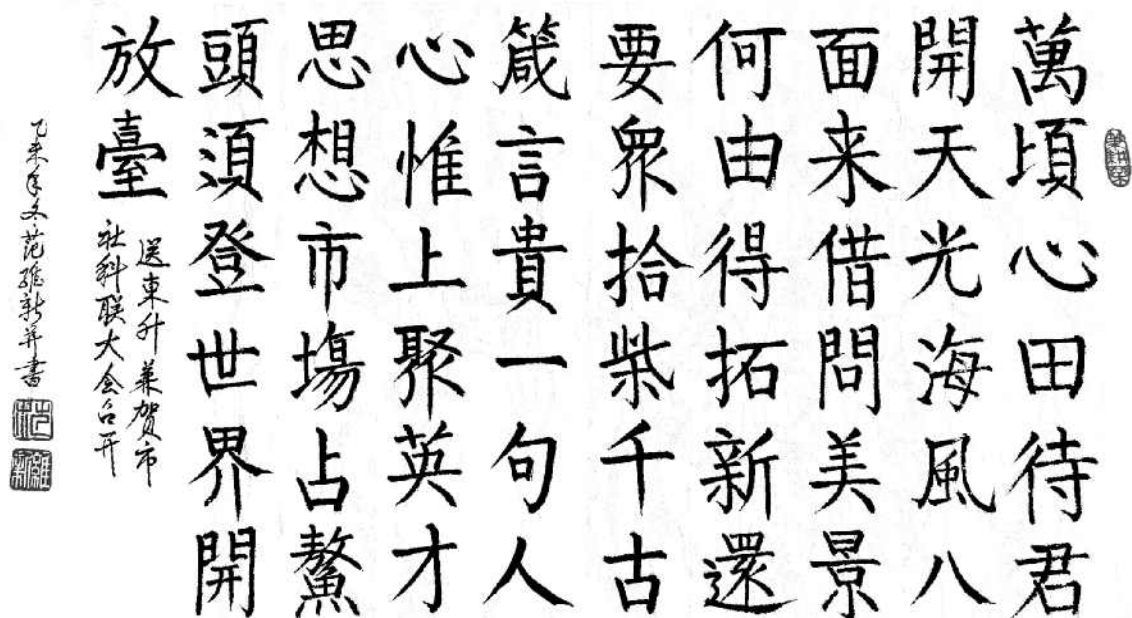 萬頃心田待君
開天光海風八
面来借問美景
何由得拓新還
要眾拾柴千古
箴言貴一句人
心惟上聚英才
思想市場占鰲
頭須登世界開
放臺
送東升兼賀市
社科联大会召开
乙未年冬范維新並書